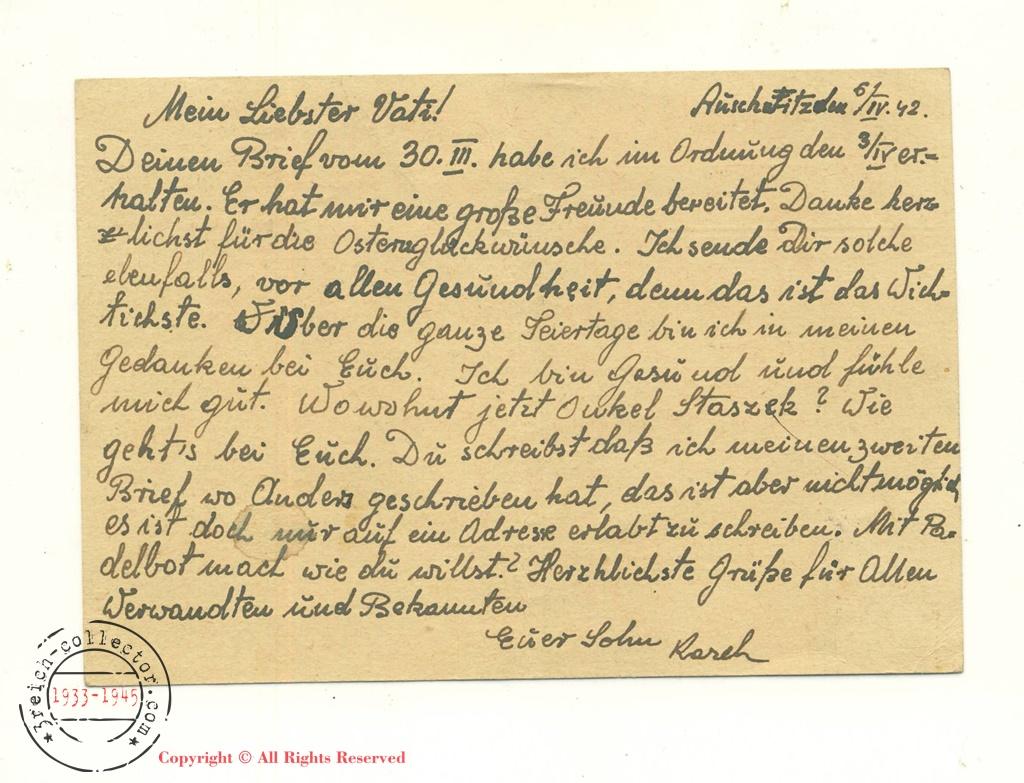 Mein Liebster Vati! Auschwitz den 6/IV.42.
Deinen Brief vom 30.III. habe ich im Ordnung den 3/IV er-
halten. Er hat mir eine große Freunde bereitet. Danke herz-
lichst für die Osternglückwünsche. Ich sende Dir solche
ebenfalls, vor allen Gesundheit, denn das ist das Wich-
tichste. Über die ganze Feiertage bin ich in meinen
Gedanken bei Euch. Ich bin Gesund und fühle
mich gut. Wo wohnt jetzt Onkel Staszek? Wie
geht's bei Euch. Du schreibst daß ich meinen zweiten
Brief wo Anders geschrieben hat, das ist aber nicht möglich,
es ist doch nur auf ein Adrese erlabt zu schreiben. Mit Pa-
delbot mach wie du willst.? Herzhlichste Grüße für Allen
Verwandten und Bekannten
Euer Sohn
3reich-collector.com
1933-1945
Copyright © All Rights Reserved